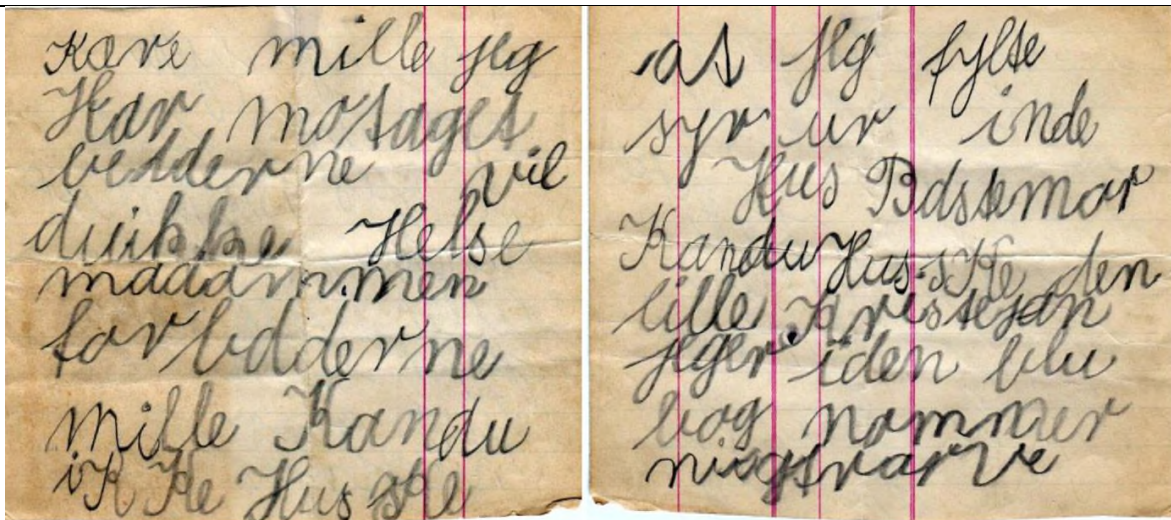 Kære mille jeg
Har motaget
bedderne vil
du ikke Helse
maaammen
for bdderne
mille Kandu
ikke Huske
at jeg fylte
syv ur inde
Hus Bdstemor
Kandu Hus-ske den
lille Kristejan
jeger i den blu
bog nommer